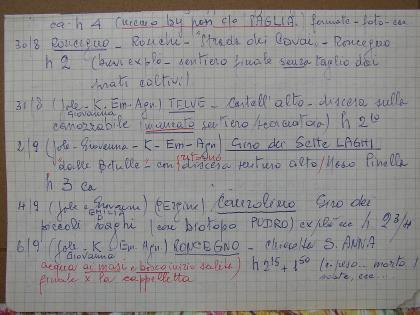 ca h 4 (                    PAGLIA) formate - foto - con
30/8 RONCEGNO - Ronchi - "Strada dei Cavai" - Roncegno
h 2 (        explo - sentiero finale senza taglio dai
prati coltivi)
31/8 (Jole - K - Em - Agn) TELVE - Castell'alto - discesa sulla
Giovanna
carrozzabile (mancato sentiero                ) h 2
2/9 (Jole - Giovanna - K - Em - Agn) GIRO dei SETTE LAGHI
ritorno
"dalle Betulle" - con discesa sentiero alto / Maso Pinella
h 3 ca
4/9 (Jole e Giovanna) (PERGINE) Canzolino Giro dei
EMILIA
piccoli laghi (con biotopo PUDRO)                h 2 3/4
6/9 (Jole - K - Em - Agn) RONCEGNO - chiesetta S. ANNA
Giovanna
acqua ai masi e                inizio salita h 2 15 + 1 50
finale x la cappelletta